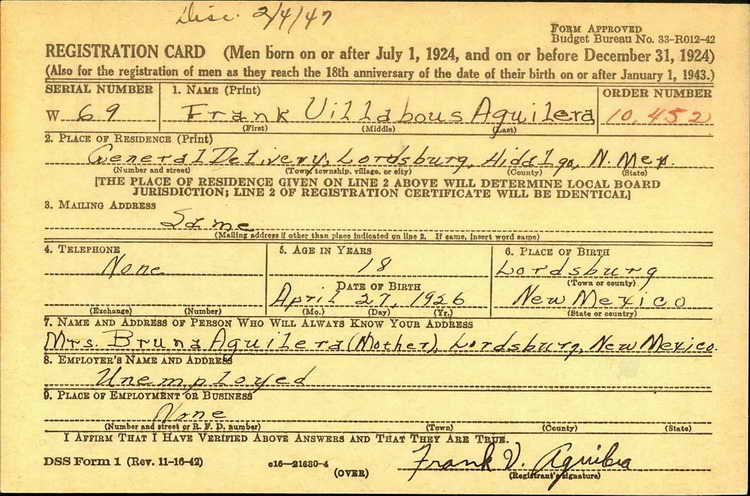 Disc. 2/4/47
FORM APPROVED
Budget Bureau No. 33-R012-42
REGISTRATION CARD (Men born on or after July 1, 1924, and on or before December 31, 1924)
(Also for the registration of men as they reach the 18th anniversary of the date of their birth on or after January 1, 1943.)
SERIAL NUMBER 1. NAME (Print) ORDER NUMBER
W 69 Frank Villabous Aguilera 10,452
(First) (Middle) (Last)
2. PLACE OF RESIDENCE (Print)
General Delivery, Lordsburg, Hidalgo, N. Mex.
(Number and street) (Town, township, village, or city) (County) (State)
[THE PLACE OF RESIDENCE GIVEN ON LINE 2 ABOVE WILL DETERMINE LOCAL BOARD
JURISDICTION; LINE 2 OF REGISTRATION CERTIFICATE WILL BE IDENTICAL]
3. MAILING ADDRESS
Same
(Mailing address if other than place indicated on line 2. If same, insert word same)
4. TELEPHONE 5. AGE IN YEARS 6. PLACE OF BIRTH
None 18 Lordsburg
DATE OF BIRTH (Town or county)
April 27, 1926 New Mexico
(Exchange) (Number) (Mo.) (Day) (Yr.) (State or country)
7. NAME AND ADDRESS OF PERSON WHO WILL ALWAYS KNOW YOUR ADDRESS
Mrs. Bruna Aguilera (Mother), Lordsburg, New Mexico.
8. EMPLOYER'S NAME AND ADDRESS
Unemployed
9. PLACE OF EMPLOYMENT OR BUSINESS
None
(Number and street or R. F. D. number) (Town) (County) (State)
I AFFIRM THAT I HAVE VERIFIED ABOVE ANSWERS AND THAT THEY ARE TRUE.
DSS Form 1 (Rev. 11-16-42) c16—21630-4 Frank V. Aguilera
(OVER) (Registrant's signature)